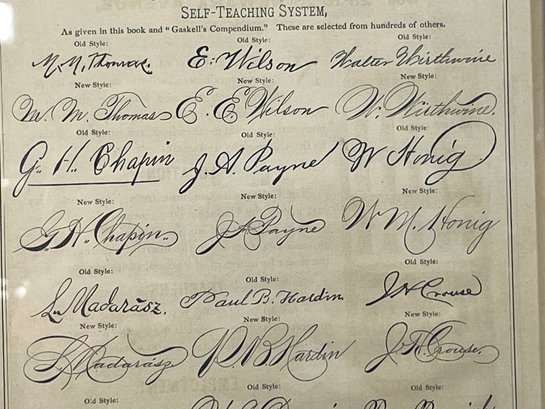 SELF-TEACHING SYSTEM,
As given in this book and "Gaskell's Compendium." These are selected from hundreds of others.
Old Style: Old Style: Old Style:
M. M. Thomas. E. Wilson Walter Wirthwine
New Style: New Style: New Style:
M. M. Thomas E. E. Wilson W. Wirthwine.
Old Style: Old Style: Old Style:
G. H. Chapin J. A. Payne W Honig
New Style: New Style: New Style:
G. H. Chapin. J. A. Payne W. M. Honig
Old Style: Old Style: Old Style:
L. Madarász. Paul B. Hardin. J H Crouse
New Style: New Style: New Style:
L. Madarász P. B. Hardin J. H. Crouse.
Old Style: Old Style: Old Style: